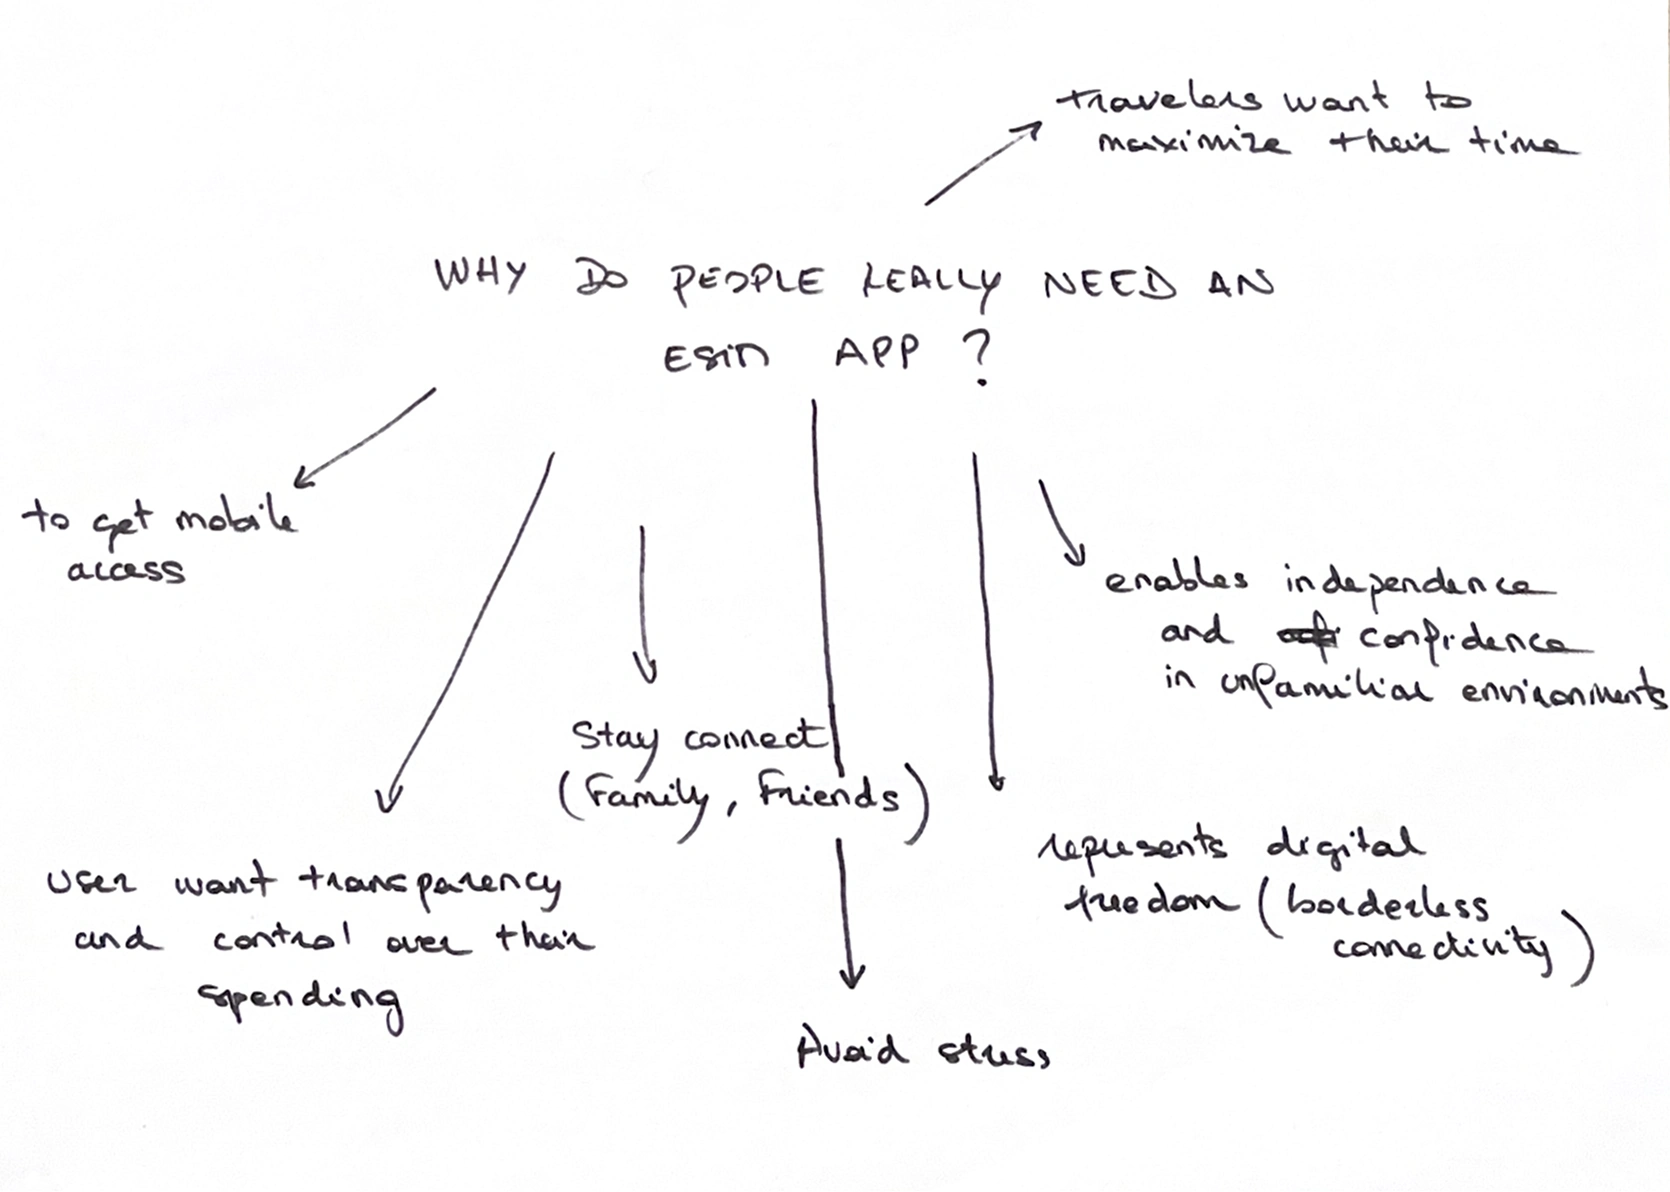 travelers want to
maximize their time
WHY DO PEOPLE REALLY NEED AN
ESIM APP ?
to get mobile
access
enables independence
and confidence
in unfamiliar environments
Stay connect
(Family, Friends)
user want transparency
and control over their
spending
represents digital
freedom (borderless
connectivity)
Avoid stress